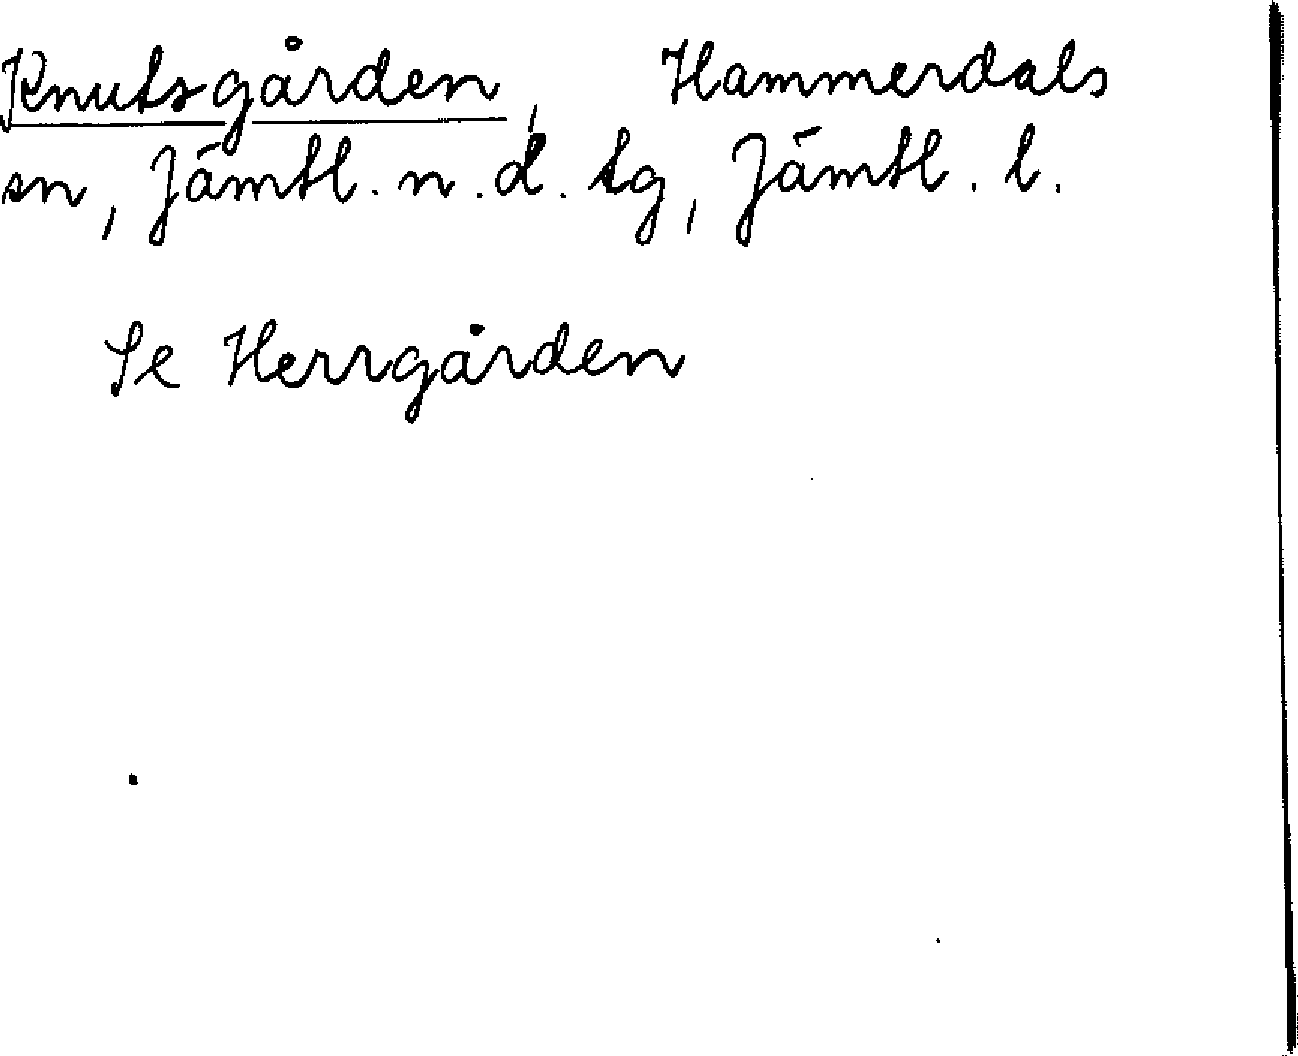 Knutsgården, Hammerdals
sn, Jämtl. n. d. tg, Jämtl. l.
Se Herrgården